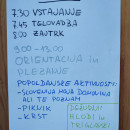 7.30 VSTAJANJE
7.45 TELOVADBA
8.00 ZAJTRK
9.00 - 13.00
ORIENTACIJA IN
PLEZANJE
POPOLDANSKE AKTIVNOSTI
- SLOVENIJA MOJA DOMOVINA
ALI TE POZNAM
- PIKNIK
- KRST
DOLGI
HLAČE IN